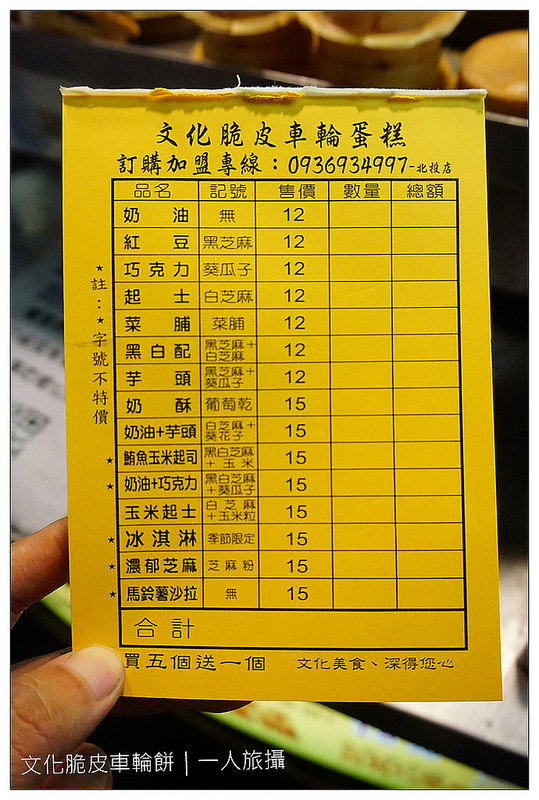 文化脆皮車輪蛋糕
訂購加盟專線：0936934997-北投店
品名 記號 售價 數量 總額
奶油 無 12
紅豆 黑芝麻 12
巧克力 葵瓜子 12
起士 白芝麻 12
菜脯 菜脯 12
黑白配 黑芝麻+白芝麻 12
芋頭 黑芝麻+葵瓜子 12
奶酥 葡萄乾 15
奶油+芋頭 白芝麻+葵花子 15
★ 鮪魚玉米起司 黑白芝麻+玉米 15
★ 奶油+巧克力 黑白芝麻+葵瓜子 15
玉米起士 白芝麻+玉米粒 15
★ 冰淇淋 季節限定 15
★ 濃郁芝麻 芝麻粉 15
★ 馬鈴薯沙拉 無 15
合計
★註：★字號不特價
買五個送一個 文化美食、深得您心
文化脆皮車輪餅 | 一人旅攝